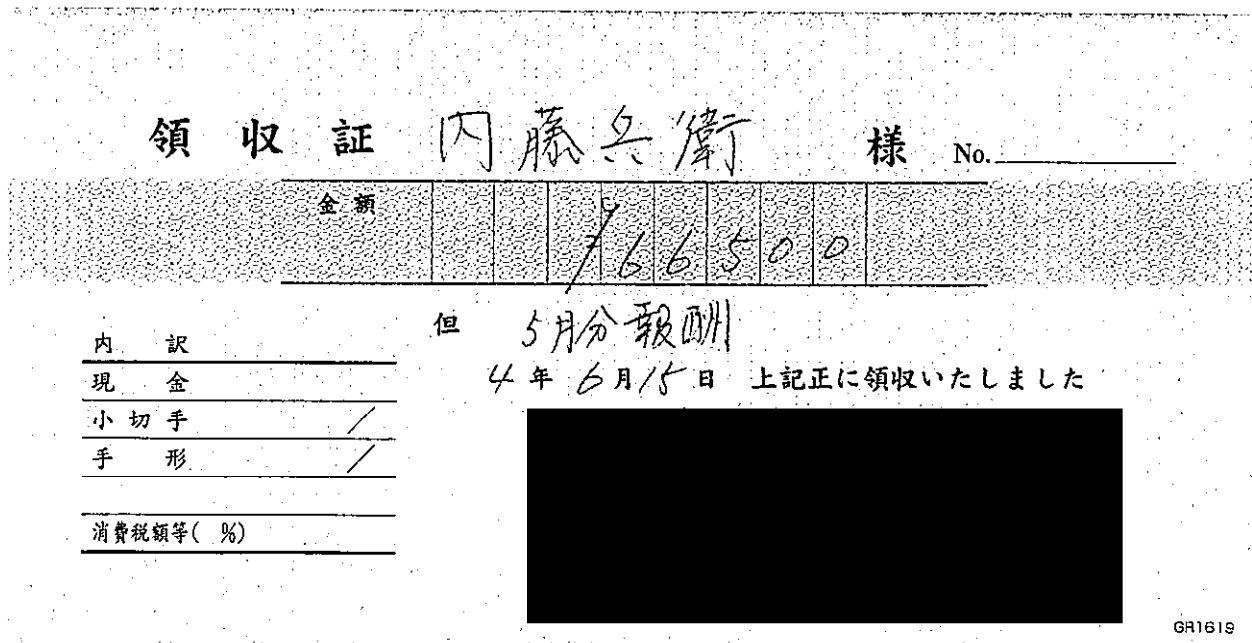 領 収 証 内藤兵衛 様 No.
金 額 ¥66500
但 5月分報酬
4年 6月15日 上記正に領収いたしました
内 訳
現 金
小 切 手 /
手 形 /
消費税額等( %)
GR1619